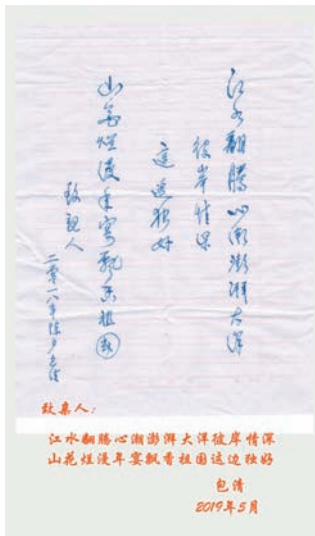 江水翻腾心潮澎湃大洋
彼岸情深
这边独好
山花烂漫年宴飘香祖国
致亲人
二零一八年除夕包清
致亲人：
江水翻腾心潮澎湃大洋彼岸情深
山花烂漫年宴飘香祖国这边独好
包清
2019年5月